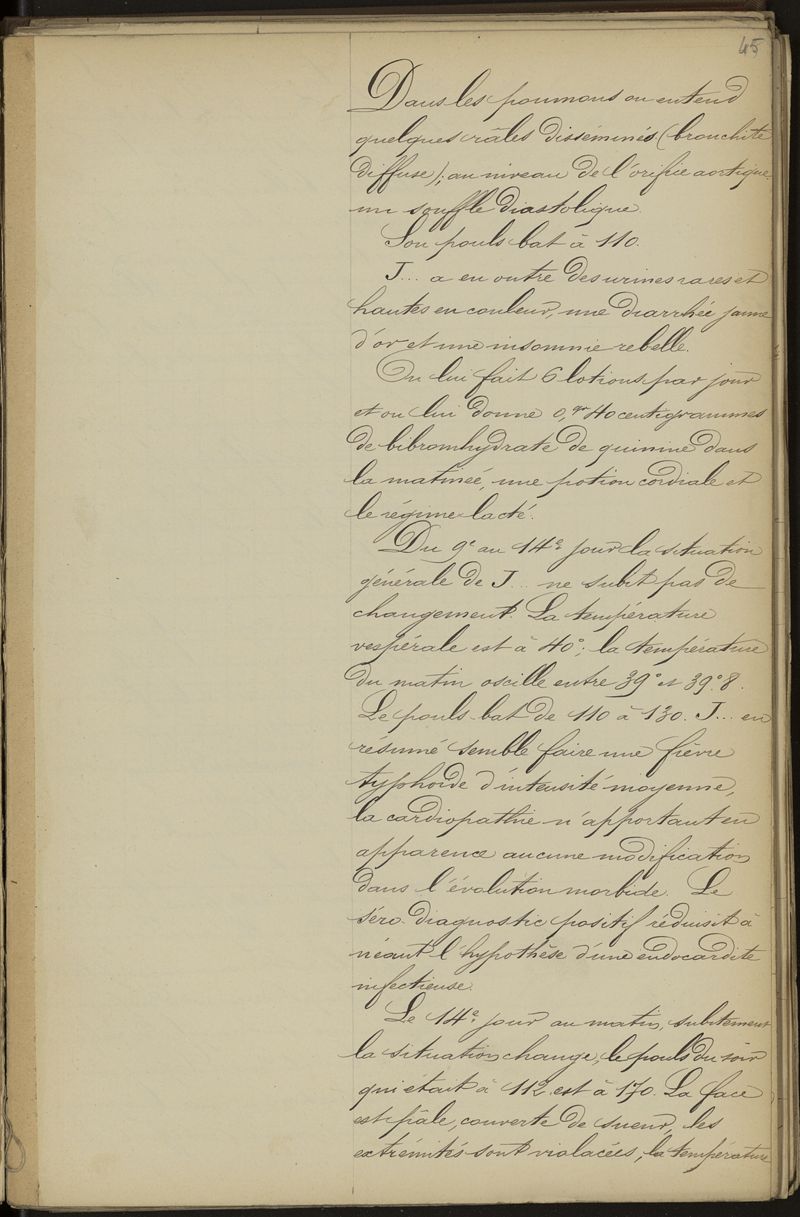 45
Dans les poumons on entend
quelques râles disséminés (bronchite
diffuse); au niveau de l'orifice aortique
un souffle diastolique.
Son pouls bat à 110.
J... a en outre des urines rares et
hautes en couleur, une diarrhée jaune
d'or et une insomnie rebelle.
On lui fait 6 lotions par jour
et on lui donne 0,gr 40 centigrammes
de bibromhydrate de quinine dans
la matineé, une potion cordiale et
le régime lacté.
Du 9e au 14e jour la situation
générale de J... ne subit pas de
changement. La température
vespérale est à 40°; la température
du matin oscille entre 39° et 39°8.
Le pouls bat de 110 à 130. J... en
résumé semble faire une fièvre
typhoïde d'intensité moyenne,
la cardiopathie n'apportant en
apparence aucune modification
dans l'évolution morbide. Le
séro-diagnostic positif réduisit à
néant l'hypothèse d'une endocardite
infectieuse.
Le 14e jour au matin, subitement
la situation change, le pouls du soir
qui était à 112 est à 170. La face
est pâle, couverte de sueur, les
extrémités sont violacées, la température